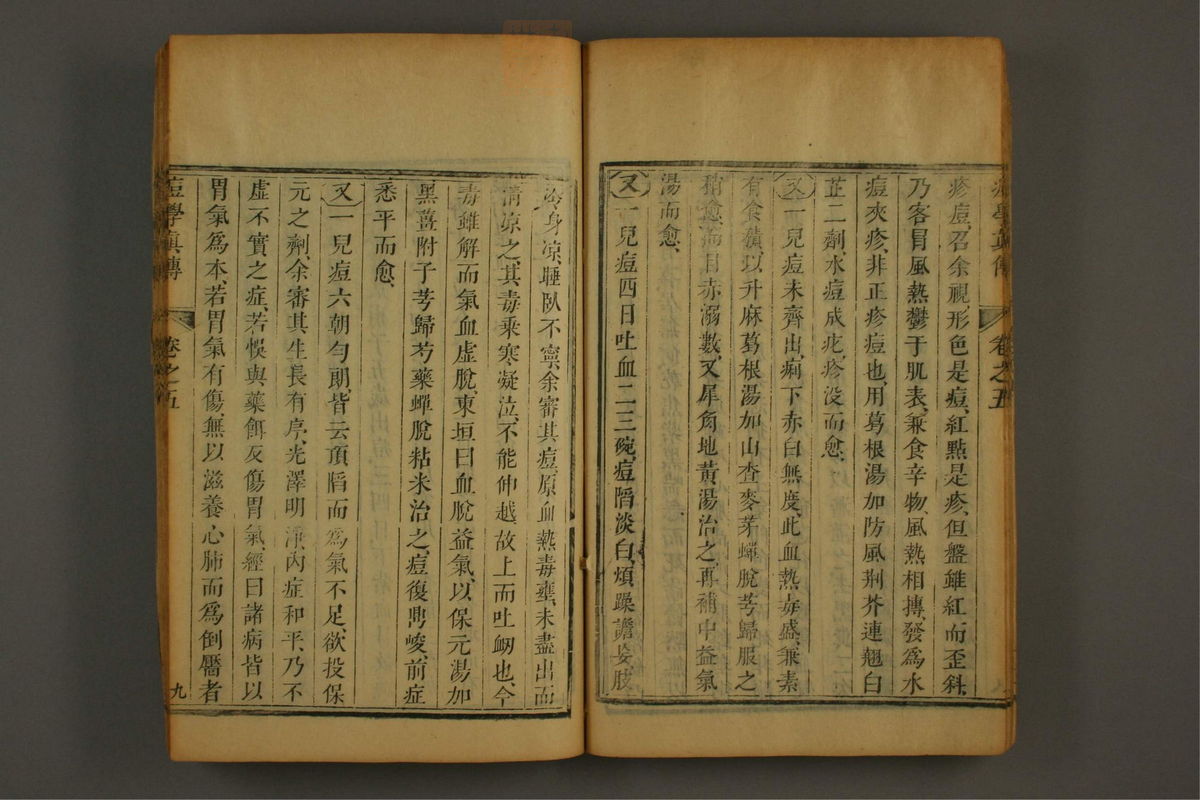 疹痘召余視形色是痘紅點是疹但盤雖紅而歪斜
乃客冒風熱鬱于肌表兼食辛物風熱相摶發爲水
痘夾疹非正疹痘也用葛根湯加防風荆芥連翹白
芷二劑水痘成疕疹没而愈
又一兒痘未齊出痢下赤白無度此血熱毒盛兼素
有食積以升麻葛根湯加山查麥芽蟬脫芎歸服之
稍愈而目赤溺數又犀角地黃湯治之再補中益氣
湯而愈
又一兒痘四日吐血二三碗痘陷淡白煩躁譫妄肢
冷身凉睡臥不寧余審其痘原血熱毒壅未盡出而
清凉之其毒乘寒凝泣不能伸越故上而吐衂也今
毒雖解而氣血虛脫東垣曰血脫益氣以保元湯加
黑薑附子芎歸芍藥蟬脫粘米治之痘復鼎峻前症
悉平而愈
又一兒痘六朝勻朗皆云頂陷而爲氣不足欲投保
元之劑余審其生長有序光澤明淨內症和平乃不
虛不實之症若悞與藥餌反傷胃氣經曰諸病皆以
胃氣爲本若胃氣有傷無以滋養心肺而爲倒靨者
痘學眞傳 卷之五 九